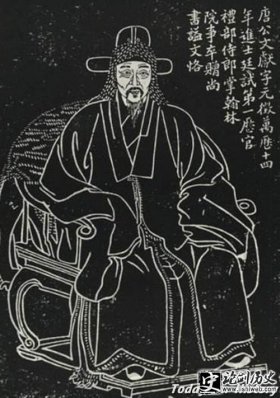 唐公文獻字元徵萬曆十四
年進士廷試第一歷官
禮部侍郎掌翰林
院事卒贈尚
書謚文恪
www.lishiweb.com